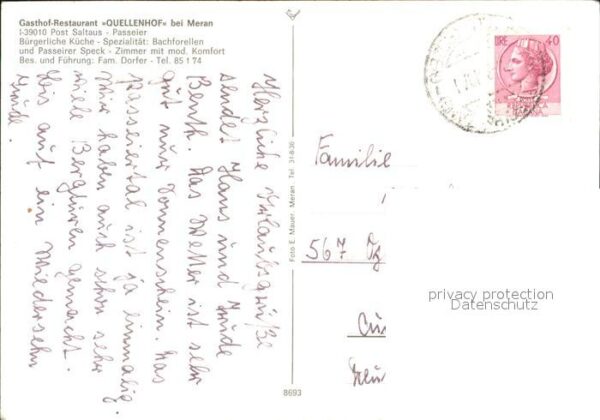 Gasthof-Restaurant »QUELLENHOF« bei Meran
I-39010 Post Saltaus - Passeier
Bürgerliche Küche - Spezialität: Bachforellen
und Passeirer Speck - Zimmer mit mod. Komfort
Bes. und Führung: Fam. Dorfer - Tel. 85 1 74
Herzliche Urlaubsgrüße
sendet Hans und Trude
Benth. Das Wetter ist sehr
gut nur Sonnenschein. Das
Passeiertal ist ja einmalig.
Wir haben auch schon sehr
viele Bergtouren gemacht.
Bis auf ein Wiedersehn
Trude.
Foto E. Mauer, Meran, Tel. 31-8-36
8693
LIRE 40
Familie
567
privacy protection
Datenschutz